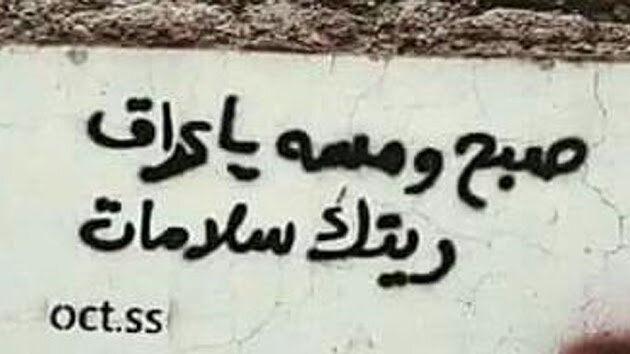 صبح ومسه يا عراق
ريتك سلامات
oct.ss